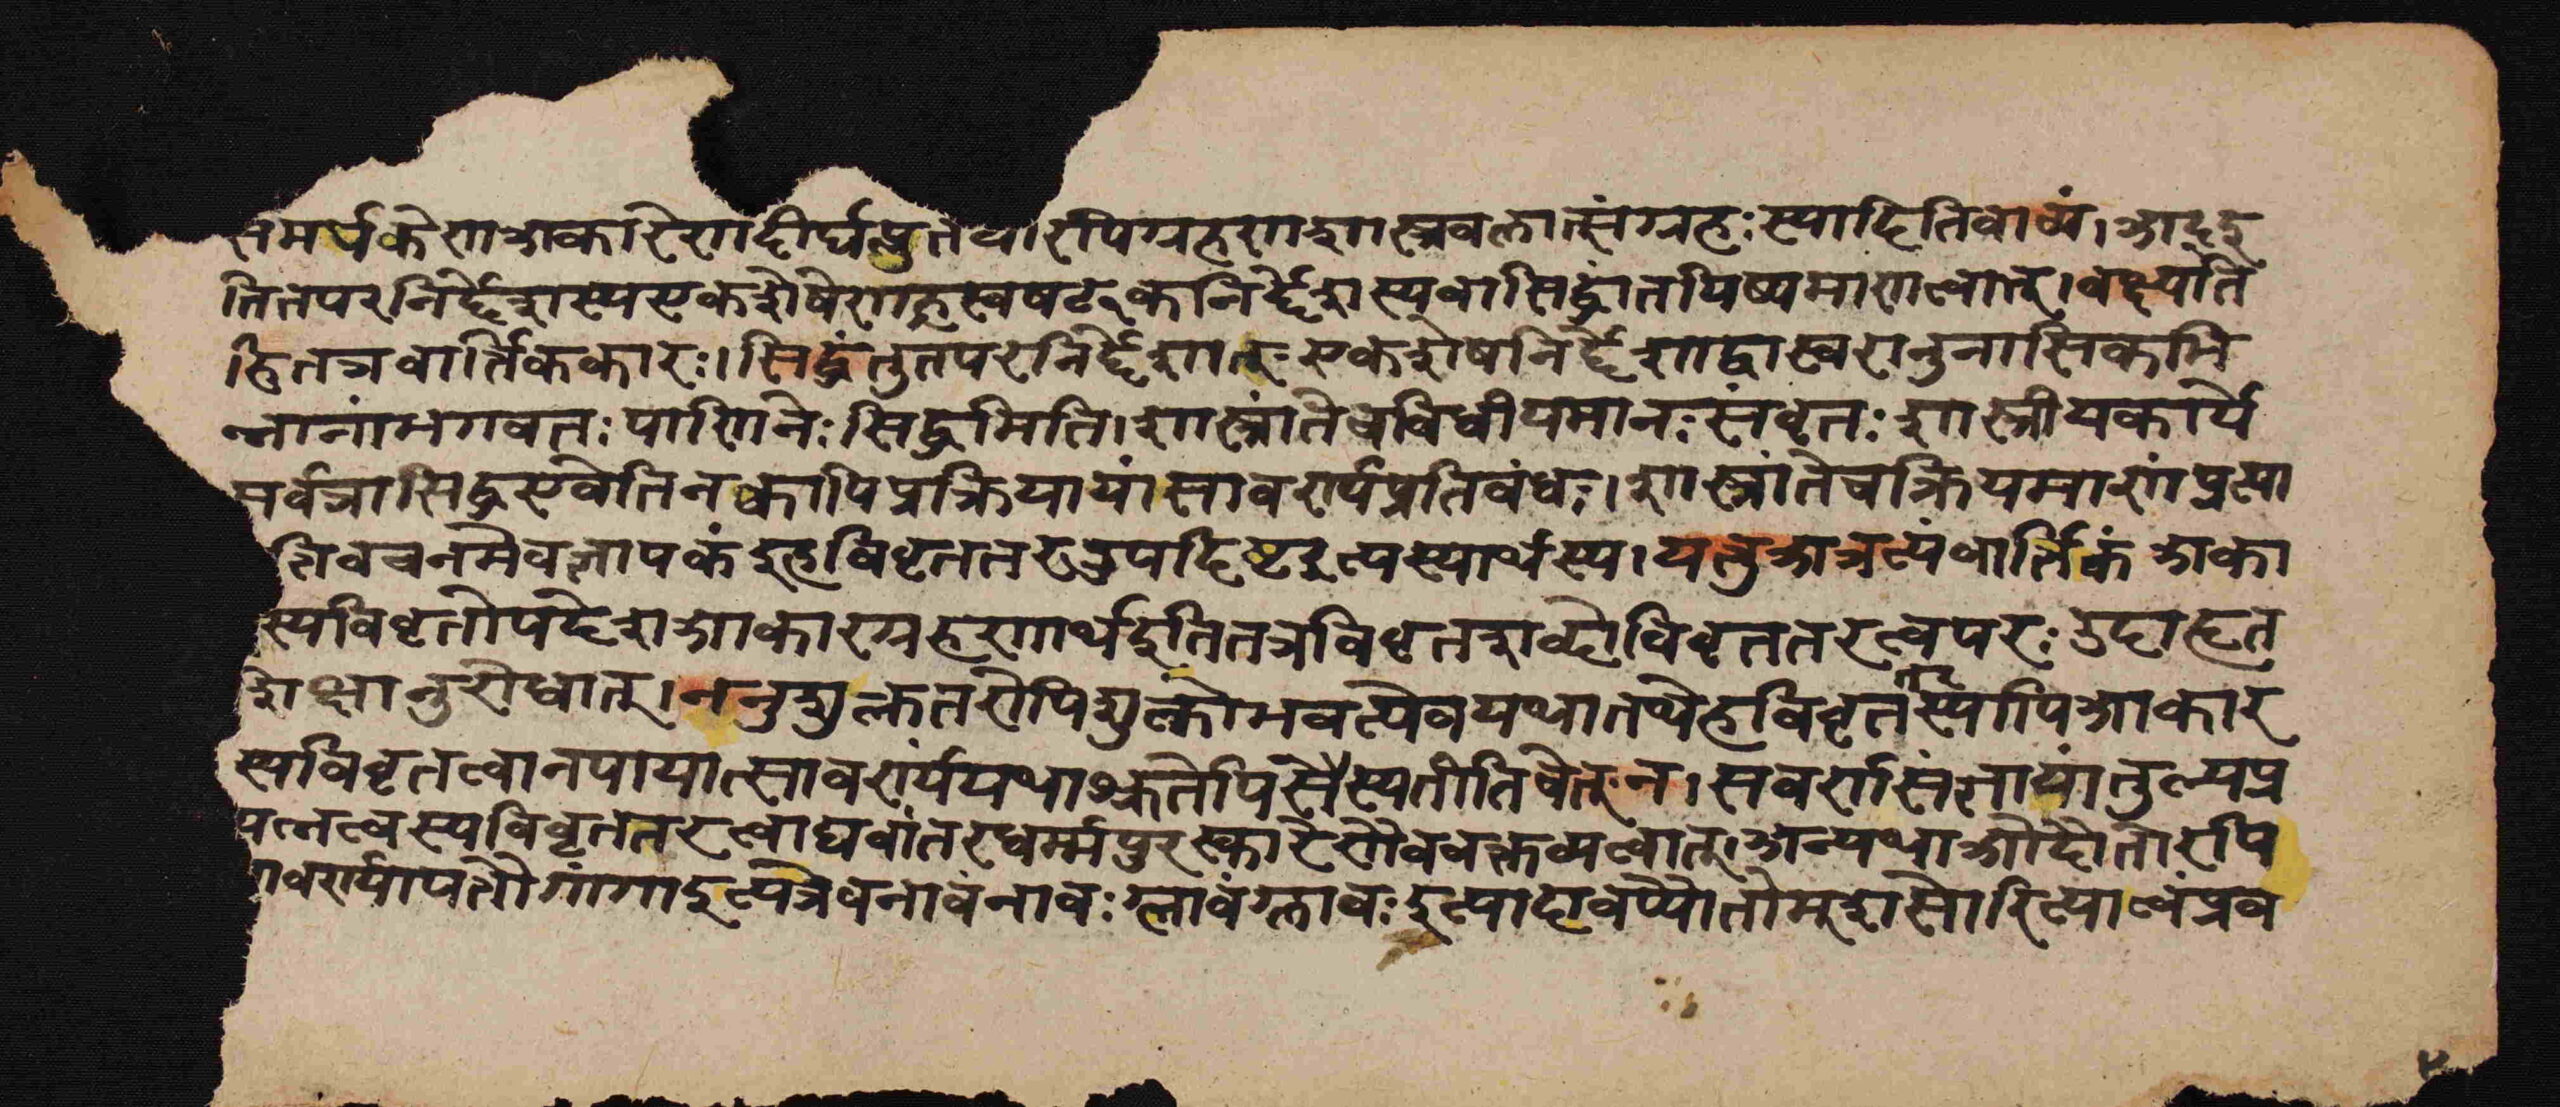 समर्पकेण अकारेण दीर्घप्लुतयोरपिग्रहणशास्त्रबलात्संग्रहः स्यादितिवाच्यं। अइउ
तितपरनिर्द्देशस्यएकशेषेणह्रस्वषट्कनिर्द्देशस्यवासिद्धांतयिष्यमाणत्वात्। वक्ष्यति
हितत्रवार्तिककारः। सिद्धंतुतपरनिर्द्देशात् एकशेषनिर्द्देशाद्वास्वरानुनासिकभि
न्नानांभगवतः पाणिनेः सिद्धमिति। शास्त्रांतेचविधीयमानः संवृतः शास्त्रीयकार्ये
सर्वत्रासिद्धएवेतिनक्वापिप्रक्रियायांसावर्ण्यप्रतिबंधः। शास्त्रांतेचक्रियमाणंप्रत्या
त्तिवचनमेवज्ञापकंइहविवृततरउपदिष्टइत्यस्यार्थस्य। यत्तुअत्रत्यंवार्तिकं अका
स्यविवृतोपदेशआकारग्रहणार्थइतितत्रविवृतशब्दोविवृततरत्वपरः उदाहृत
शिक्षानुरोधात्। ननुशुक्लतरोपिशुक्लोभवत्येवयथातथेहविवृततरस्यापिआकार
स्यविवृतत्वानपायात्सावर्ण्यंयथाश्रुतेपिसेत्स्यतीतिचेत् न। सवर्णसंज्ञायांतुल्यप्र
यत्नत्वस्यविवृततरत्वाद्यवांतरधर्म्मपुरस्कारेणैववक्तव्यत्वात्। अन्यथाओदौतोरपि
ावर्ण्यापत्तौगांगाइत्यत्रेवनावंनावः ग्लावंग्लावः इत्यादावप्यौतोम्शसोरित्यात्वंप्रव
४